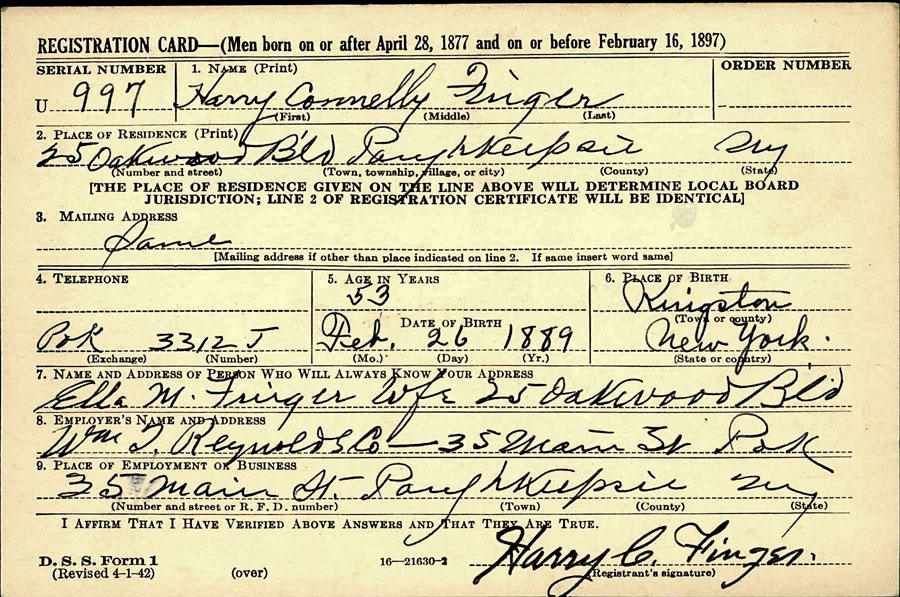 REGISTRATION CARD—(Men born on or after April 28, 1877 and on or before February 16, 1897)
SERIAL NUMBER 1. NAME (Print) ORDER NUMBER
U 997 Harry Connelly Finger
(First) (Middle) (Last)
2. PLACE OF RESIDENCE (Print)
25 Oakwood Bl'd Poughkeepsie NY
(Number and street) (Town, township, village, or city) (County) (State)
[THE PLACE OF RESIDENCE GIVEN ON THE LINE ABOVE WILL DETERMINE LOCAL BOARD
JURISDICTION; LINE 2 OF REGISTRATION CERTIFICATE WILL BE IDENTICAL]
3. MAILING ADDRESS
Same
[Mailing address if other than place indicated on line 2. If same insert word same]
4. TELEPHONE 5. AGE IN YEARS 6. PLACE OF BIRTH
53 Kingston
DATE OF BIRTH (Town or county)
Pok 3312 J Feb. 26 1889 New York.
(Exchange) (Number) (Mo.) (Day) (Yr.) (State or country)
7. NAME AND ADDRESS OF PERSON WHO WILL ALWAYS KNOW YOUR ADDRESS
Ella M. Finger Wfe 25 Oakwood Bl'd
8. EMPLOYER'S NAME AND ADDRESS
Wm T. Reynolds Co — 35 Main St Pok
9. PLACE OF EMPLOYMENT OR BUSINESS
35 Main St. Poughkeepsie NY
(Number and street or R. F. D. number) (Town) (County) (State)
I AFFIRM THAT I HAVE VERIFIED ABOVE ANSWERS AND THAT THEY ARE TRUE.
D. S. S. Form 1 16—21630-2 Harry C. Finger.
(Revised 4-1-42) (over) (Registrant's signature)